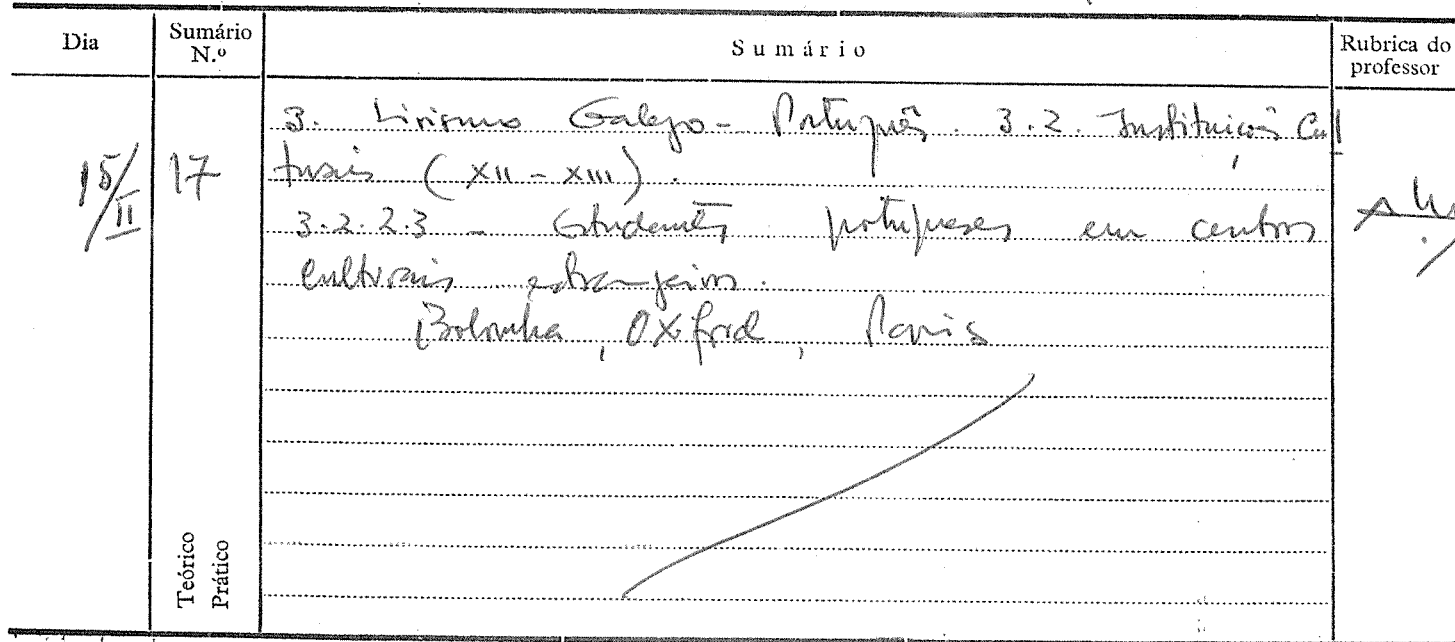 Dia
Sumário N.º
Sumário
Rubrica do professor
15/II
17
3. Lirismo Galego-Português. 3.2. Instituições Cul
turais (XII-XIII).
3.2.2.3 - Estudantes portugueses em centros
culturais estrangeiros.
Bolonha, Oxford, Paris
Teórico
Prático